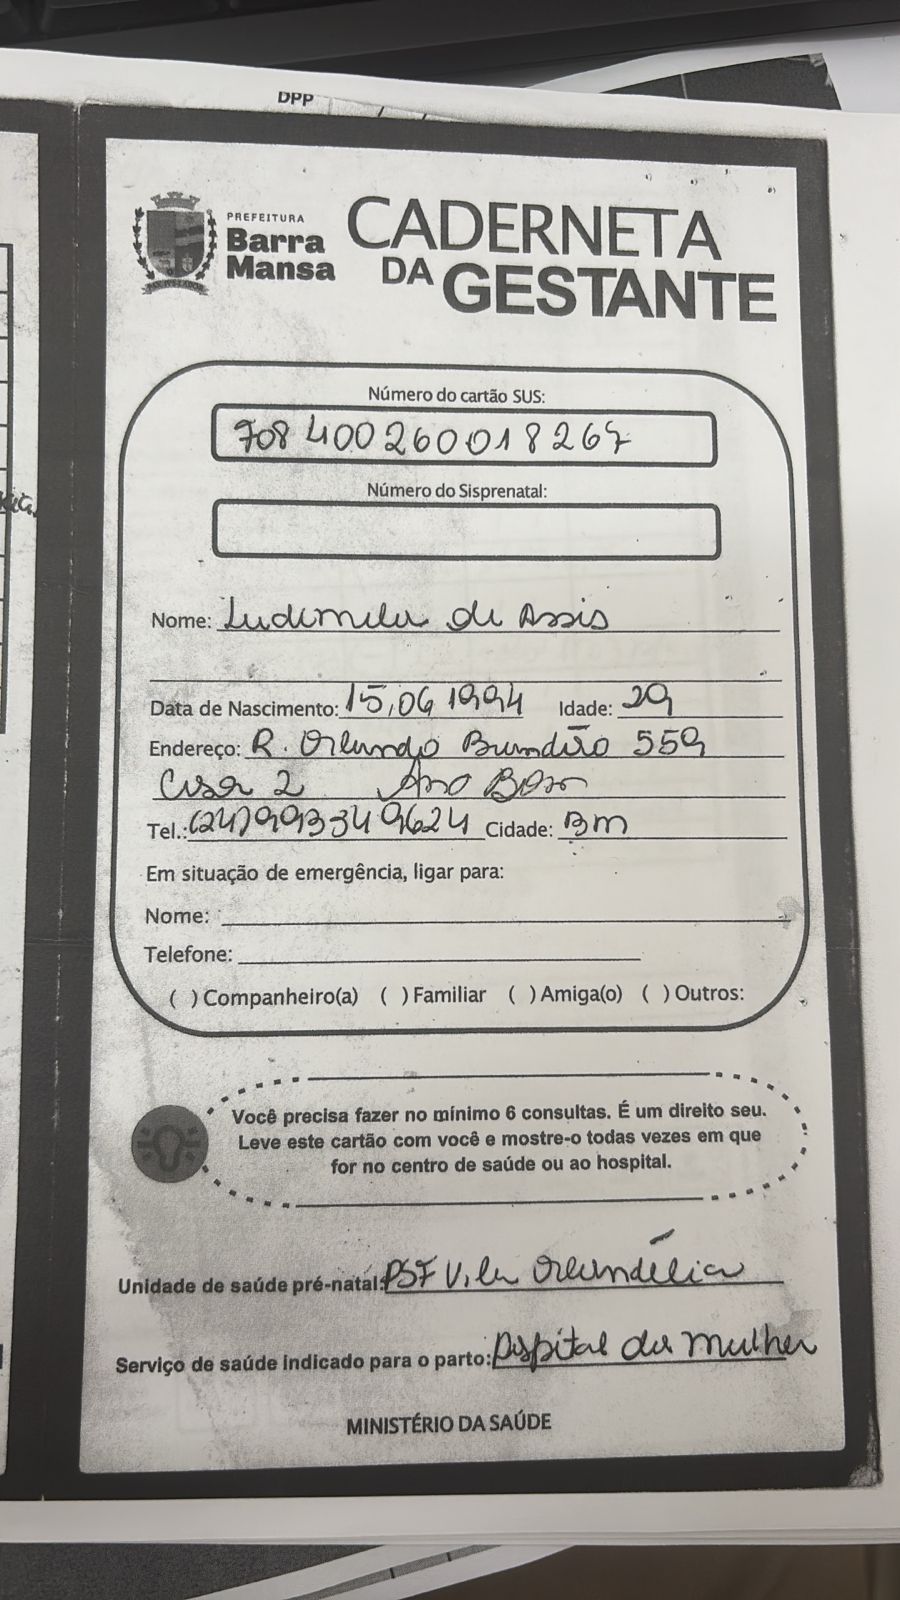 DPP
PREFEITURA
Barra
Mansa
CADERNETA
DA GESTANTE
Número do cartão SUS:
708 400260018267
Número do Sisprenatal:
Nome: Ludimila de Assis
Data de Nascimento: 15,06 1994 Idade: 29
Endereço: R. Orlando Brandão 559
Casa 2 Ano Bom
Tel.: (24) 993349624 Cidade: BM
Em situação de emergência, ligar para:
Nome:
Telefone:
( ) Companheiro(a) ( ) Familiar ( ) Amiga(o) ( ) Outros:
Você precisa fazer no mínimo 6 consultas. É um direito seu.
Leve este cartão com você e mostre-o todas vezes em que
for no centro de saúde ou ao hospital.
Unidade de saúde pré-natal: PSF Vila Orlandélia
Serviço de saúde indicado para o parto: Hospital da mulher
MINISTÉRIO DA SAÚDE